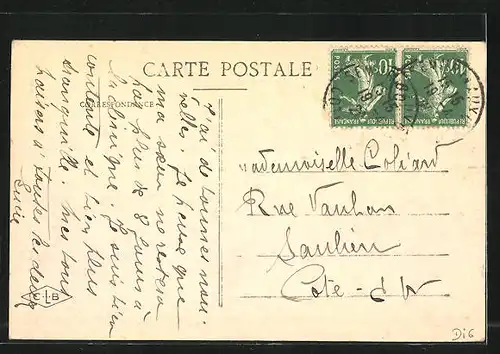 CARTE POSTALE
CORRESPONDANCE
J'ai de bonnes nou-
velles. Je pense que
ma sœur ne restera
pas plus de 8 jours à
Je suis bien
contente et bien plus
tranquille. Mes bons
baisers à toutes les deux
Lucie
Mademoiselle Coliard
Rue Vauban
Saulieu
Côte-d'Or
REPUBLIQUE FRANÇAISE
POSTES
10
REPUBLIQUE FRANÇAISE
POSTES
10
B
Di6